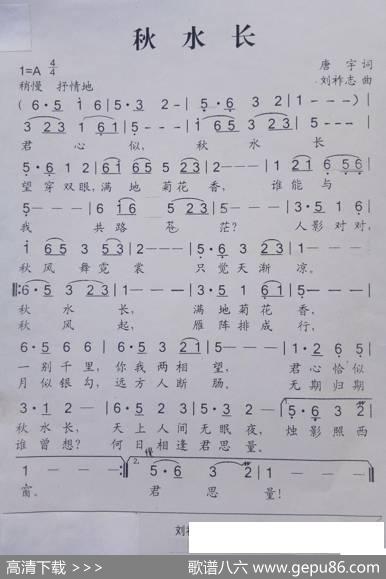 秋 水 长
1=A 4/4
唐 宇 词
稍慢 抒情地
刘祚志 曲
( 6·5 i 6 | 5·3 2 - | 5·6 3 2 | 1 - - - ) |
3 2 3 1 6 1 | 5 - - - | 1 6 5 3 5 3 | 2 - - - |
君 心 似, 秋 水 长
5·6 1 2 | 6 1 6 5 2 3 | 2 - - - | 1 2 1 6 5 6 |
望 穿 双 眼, 满 地 菊 花 香, 谁 能 与
5 - - | 6 i 6 | 5 2 3 | 5 - - - | 3·5 1 6 |
我 共 路 苍 茫? 人 影 对 对,
i 6 5 3 5 3 | 2 - - - | 5·6 3 2 3 | 1 - - - |
秋 风 舞 霓 裳 只 觉 天 渐 凉。
‖: 6·5 3 2 3 | 1 - - - | 3·5 6 1 | 5 - - - |
秋 水 长, 满 地 菊 花 香,
秋 风 起, 雁 阵 排 成 行,
6·5 6 5 | 6·5 3 2 1 | 5 - - - | 1·2 6 5 |
一 别 千 里, 你 我 两 相 望, 君 心 恰 似
月 似 银 勾, 远 方 人 断 肠。 无 期 归 期
3·1 2 - | 6·5 2 3 | 1·6 2 - | 5·6 3 2 |
秋 水 长, 天 上 人 间 无 眠 夜, 烛 影 照 西
谁 曾 想? 何 日 相 逢 君 思 量。
1 - - - :‖ 2. 慢 5·6 3 2 | 1 - - - ‖
窗。 君 思 量!
高清下载 >>>
歌谱八六 www.gepu86.com